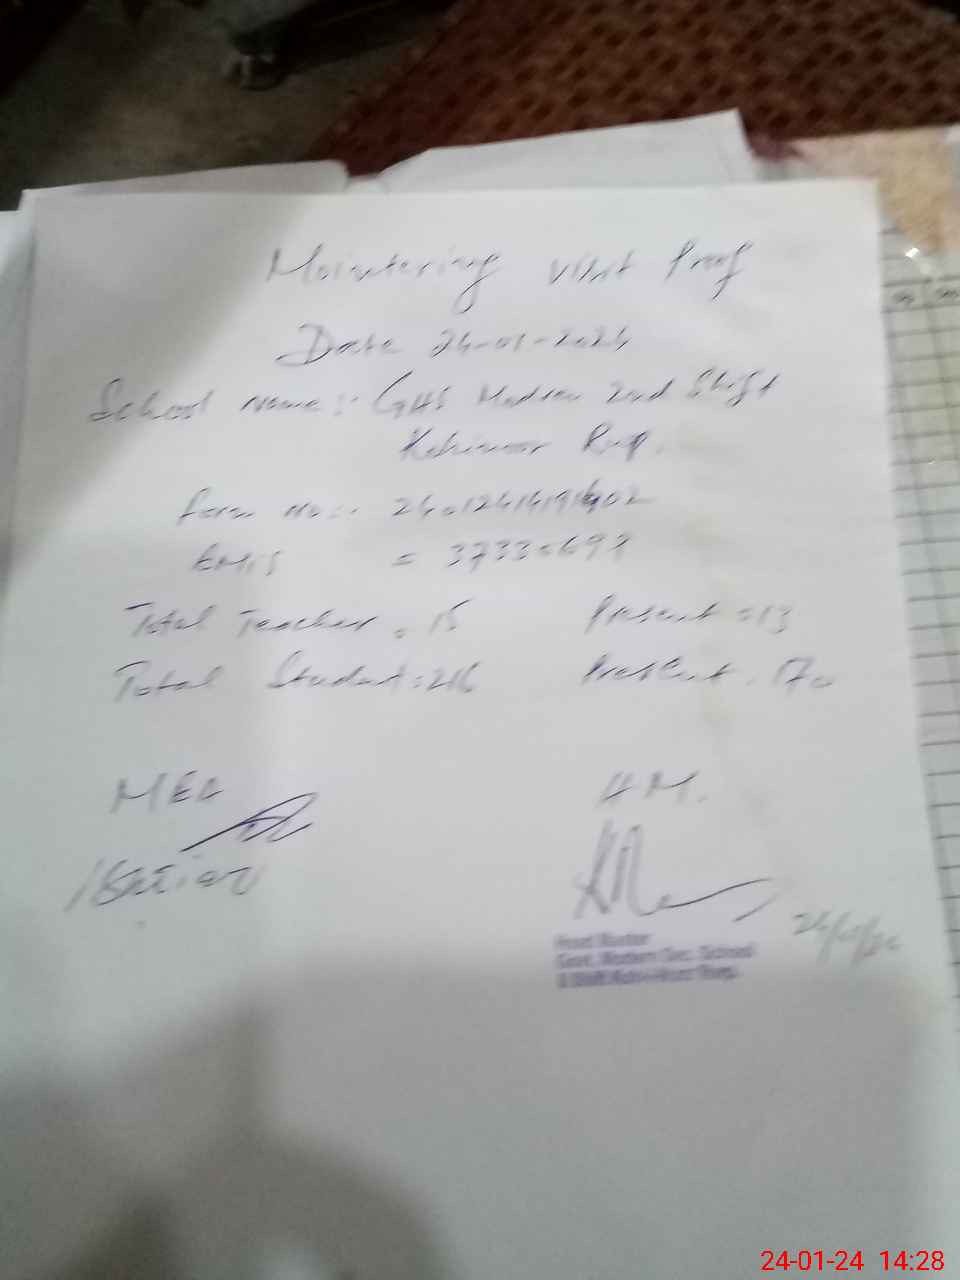 Mointering visit Proof
Date 24-01-2024
School Name:- GHS Modren 2nd Shift
Kohinoor Rwp.
Form No:-
EMIS = 37330697
Total Teacher = 15 Present = 13
Total Student = 216 Present = 170
MEA H.M.
24/01/24
Head Master
Govt. Modern Sec. School
24-01-24 14:28